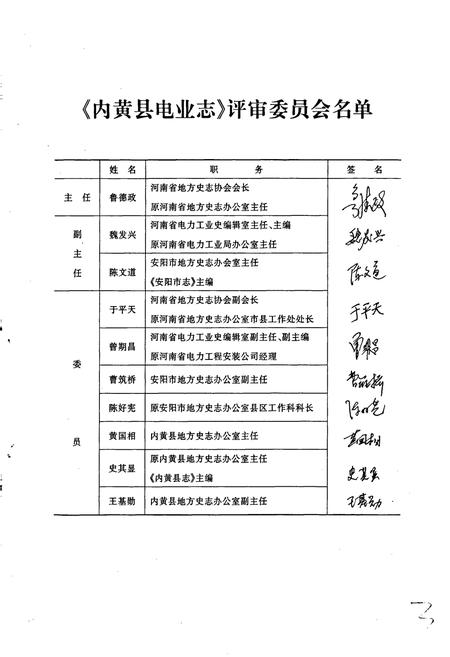 《内黄县电业志》评审委员会名单
姓 名 职 务 签 名
主 任 鲁德政 河南省地方史志协会会长
原河南省地方史志办公室主任 鲁德政
副主任 魏发兴 河南省电力工业史编辑室主任、主编
原河南省电力工业局办公室主任 魏发兴
陈文道 安阳市地方史志办公室主任
《安阳市志》主编 陈文道
委员 于平天 河南省地方史志协会副会长
原河南省地方史志办公室市县工作处处长 于平天
曾期昌 河南省电力工业史编辑室副主任、副主编
原河南省电力工程安装公司经理
曹筑桥 安阳市地方史志办公室副主任
陈好宪 原安阳市地方史志办公室县区工作科科长
黄国相 内黄县地方史志办公室主任 黄国相
史其显 原内黄县地方史志办公室主任
《内黄县志》主编 史其显
王基勋 内黄县地方史志办公室副主任 王基勋